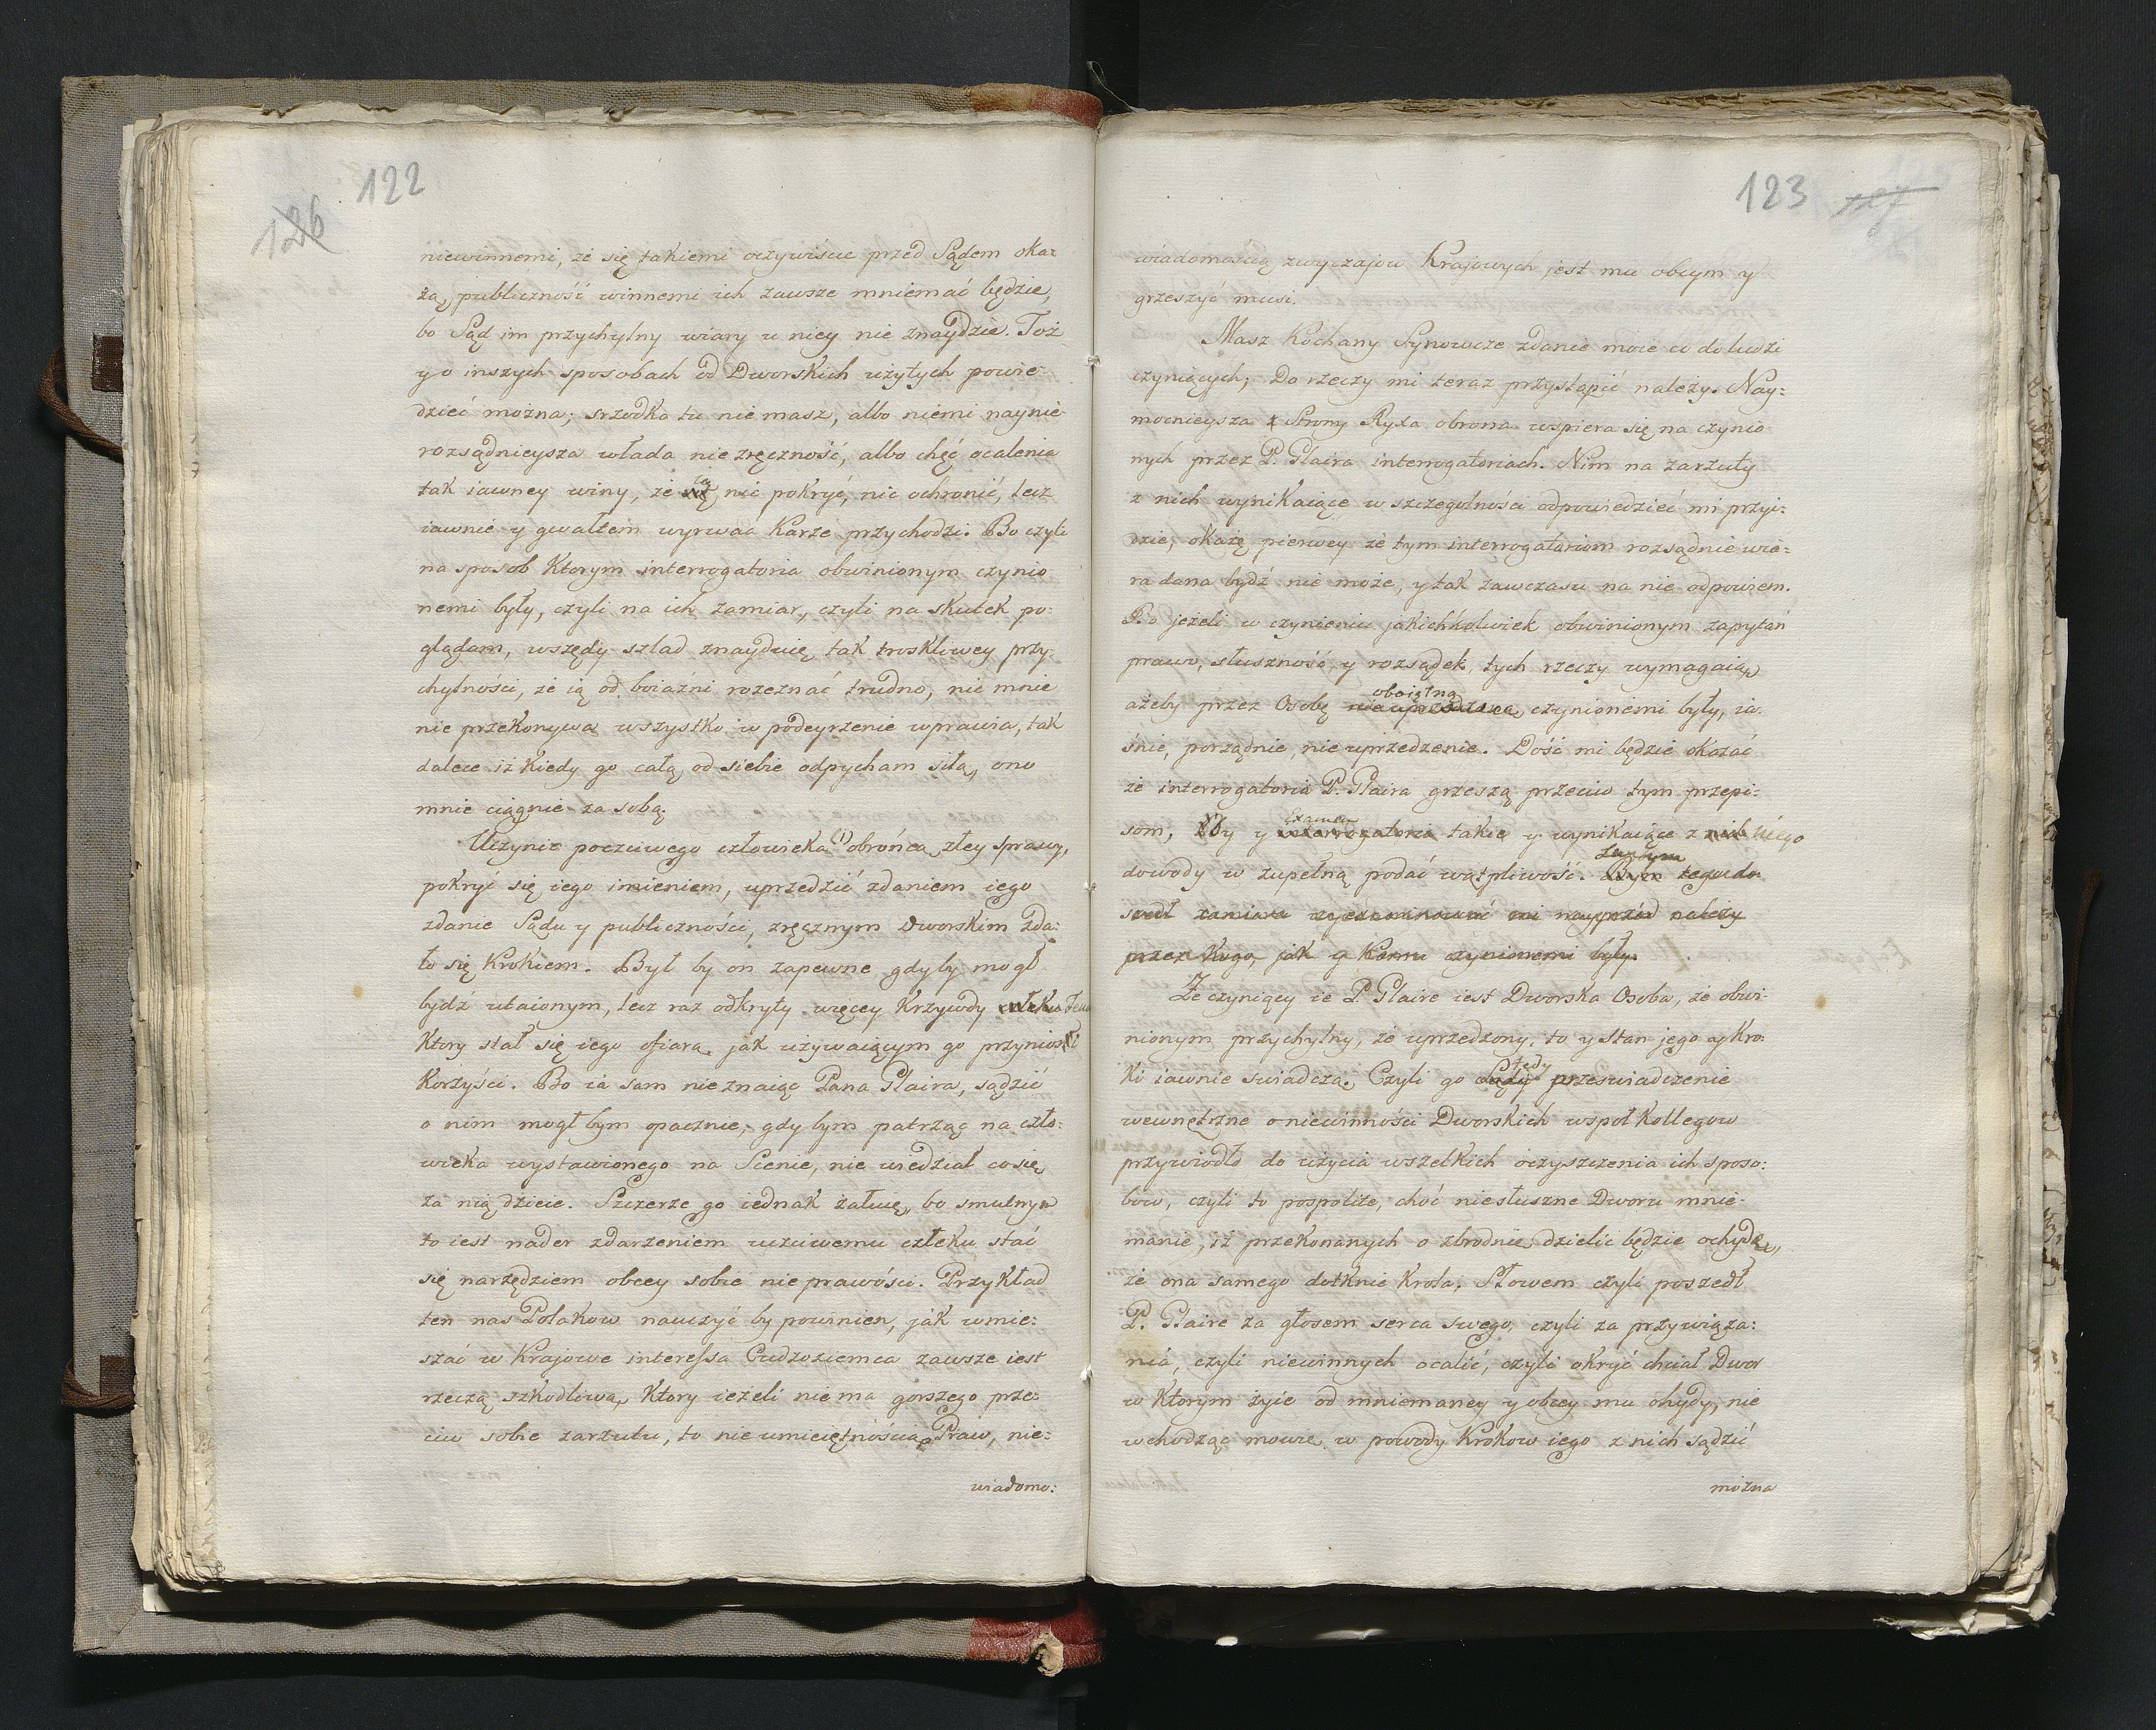 122
126
niewinnemi, że się takiemi oczywiście przed Sądem oka:
żą, publiczność winnemi ich zawsze mniemać będzie,
bo Sąd im przychylny wiary u niey nie znaydzie. Toż
y o inszych sposobach od Dworskich użytych powie-
dzieć można; srzodka tu nie masz, albo niemi naynie-
rozsądnieysza włada niezręczność, albo chęć ocalenia
tak iawney winy, że ią nie pokryć, nie ochronić, lecz
iawnie y gwałtem wyrwać Karze przychodzi. Bo czyli
na sposob Ktorym interrogatoria obwinionym czynio
nemi były, czyli na ich zamiar, czyli na skutek po:
glądam, wszędy szlad znayduię tak troskliwey przy-
chylności, że ią od boiaźni rozeznać trudno, nic mnie
nie przekonywa wszystko w podeyrzenie wprawia, tak
dalece iż Kiedy go całą od siebie odpycham siłą, ono
mnie ciągnie za sobą.
Uczynić poczciwego człowieka (1) obrońcą złey sprawy,
pokryć się iego imieniem, uprzedzić zdaniem iego
zdanie Sądu y publiczności, zręcznym Dworskim zda:
ło się Krokiem. Był by on zapewne gdyby mogł
bydź utaionym, lecz raz odkryty więcey Krzywdy
Ktory stał się iego ofiarą, jak używaiącym go przyniosł
Korzyści. Bo ia sam nieznaiąc Pana Glaira, sądzić
o nim mogł bym opacznie, gdy bym patrząc na czło:
wieka wystawionego na Scenie, nie wiedział co się
za nią dzieie. Szczerze go iednak żałuię, bo smutnym
to iest nader zdarzeniem uczciwemu człeku stać
się narzędziem obcey sobie nieprawości. Przykład
ten nas Polakow nauczyć by powinien, jak wmie:
szać w Krajowe interessa Cudzoziemca zawsze iest
rzeczą szkodliwą, Ktory ieżeli nie ma gorszego prze:
ciw sobie zarzutu, to nieumieiętnością Praw, nie:
wiadomo:
123
127
wiadomością zwyczajow Krajowych jest mu obcym y
grzeszyć musi.
Masz Kochany Synowcze zdanie moie co do ludzi
czyniących; Do rzeczy mi teraz przystąpić należy. Nay:
mocnieysza z Strony Ryxa obrona wspiera się na czynio
nych przez P. Glaira interrogatoriach. Nim na zarzuty
z nich wynikaiące w szczegolności odpowiedzieć mi przyi:
dzie, okażę pierwey że tym interrogatoriom rozsądnie wia:
ra dana bydź nie może, y tak zawczasu na nie odpowiem.
Bo jeżeli w czynieniu jakichkolwiek obwinionym zapytań
prawo, słuszność y rozsądek tych rzeczy wymagaią,
obojętną
ażeby przez Osobę czynionemi były, ia-
śnie, porządnie, nieuprzedzenie. Dość mi będzie okazać
że interrogatoria P. Glaira grzeszą przeciw tym przepi:
Examen
som, y interrogatoria takie y wynikaiące z niego
dowody w zupełną podać wątpliwość. Bym tego do
szedł zamiaru mi nayprzód należy
przez Kogo, jak y Komu czynionemi były.
Że czyniący ie P. Glaire iest Dworska Osoba, że obwi-
nionym przychylny, że uprzedzony, to y stan jego y Kro:
tędy
ki iawnie swiadczą. Czyli go przeswiadczenie
wewnętrzne o niewinności Dworskich wspoł Kollegow
przywiodło do użycia wszelkich oczyszczenia ich sposo:
bow, czyli to pospolite, choć niesłuszne Dworu mnie-
manie, iż przekonanych o zbrodnię dzielić będzie ochydę,
że ona samego dotknie Krola; Słowem czyli poszedł
P. Glaire za głosem serca swego, czyli za przywiąza:
nia, czyli niewinnych ocalić, czyli okryć chciał Dwor
w Ktorym żyie od mniemaney y obcey mu ohydy, nie
wchodząc mowię w powody Krokow iego z nich sądzić
można